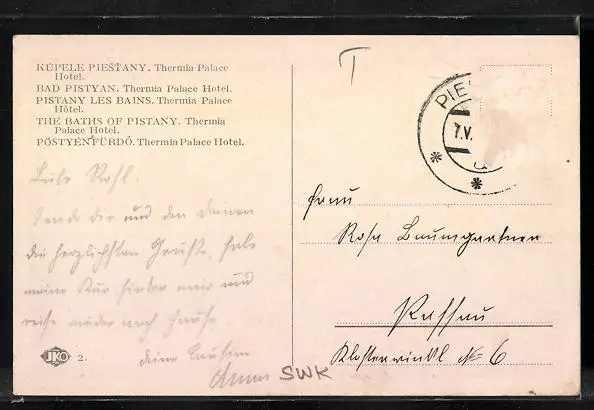 KÚPELE PIEŠŤANY. Thermia Palace
Hotel.
BAD PISTYAN. Thermia Palace Hotel.
PISTANY LES BAINS. Thermia Palace
Hôtel.
THE BATHS OF PISTANY. Thermia
Palace Hotel.
PÖSTYÉNFÜRDŐ. Thermia Palace Hotel.
T
PIE
7.V.
Liebe Rosl!
Sende dir und den deinen
die herzlichsten Grüße, habe
meine Kur hinter mir und
reise wieder nach Hause
deine Cousine
Anna
SWK
Frau
Rosa Baumgartner
Passau
Klosterwinkl № 6
JKO 2.